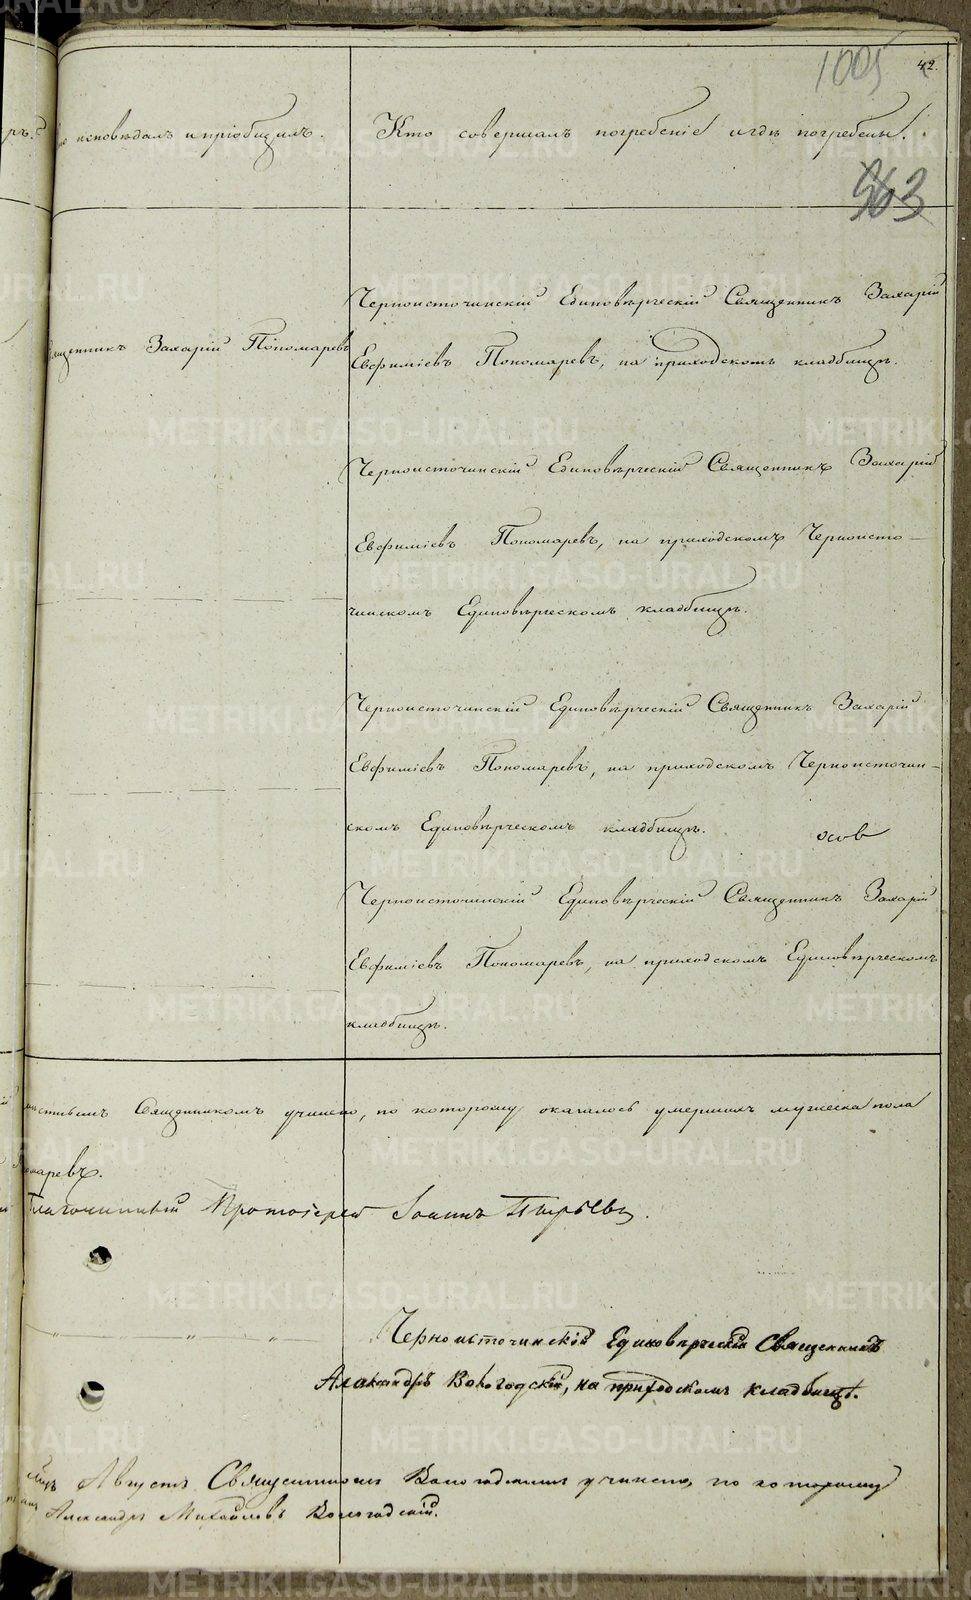 1005 42.
исповѣдалъ и пріобщилъ. Кто совершалъ погребеніе и гдѣ погребены.
963
Черноисточинскій Единовѣрческій Священникъ Захарій
Священникъ Захарій Пономаревъ
Евфиміевъ Пономаревъ, на приходскомъ кладбищѣ.
Черноисточинскій Единовѣрческій Священникъ Захарій
Евфиміевъ Пономаревъ, на приходскомъ Черноисто-
чинскомъ Единовѣрческомъ кладбищѣ.
Черноисточинскій Единовѣрческій Священникъ Захарій
Евфиміевъ Пономаревъ, на приходскомъ Черноисточин-
скомъ Единовѣрческомъ кладбищѣ.
Черноисточинскій Единовѣрческій Священникъ Захарій
Евфиміевъ Пономаревъ, на приходскомъ Единовѣрческомъ
кладбищѣ.
Священникомъ учинено, по которому оказалось умершихъ мужеска пола
номаревъ.
Благочинный Протоіерей Іоаннъ Пырьевъ.
Черноисточинскій Единовѣрческій Священникъ
Александръ Вологодскій, на приходскомъ кладбищѣ.
Августъ Священникомъ Вологодскимъ учинено, по которому
Александръ Михайловъ Вологодскій.
METRIKI.GASO-URAL.RU